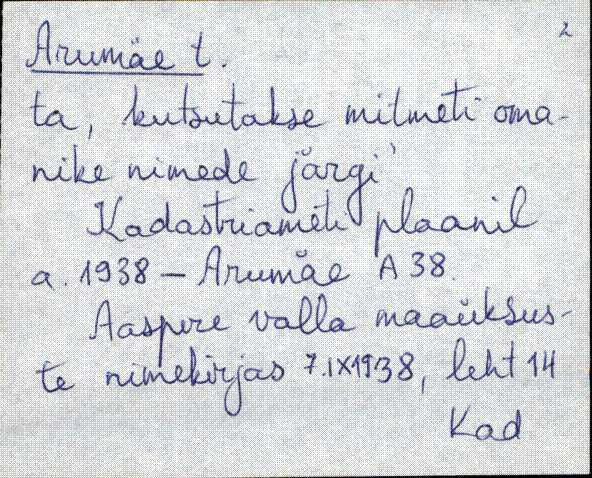 2
Arumäe t.
ta, kutsutakse mitmeti oma-
nike nimede järgi
Kadastriameti plaanil
a. 1938 — Arumäe A 38.
Aaspere valla maaüksus-
te nimekirjas 7.IX1938, leht 14
Kad